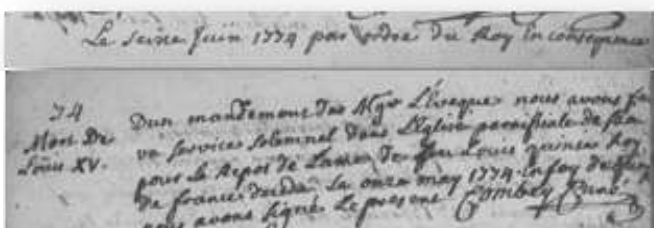 Le seize Juin 1774 par ordre du Roy En consequence
34
Mort De
Louis XV.
Dun mandement de Mgr L'Eveque nous avons fa
un service solemnel dans L'Eglise paroissiale de
pour le Repos de Lame De feu Louis quinze Roy
de france decedé le onze may 1774. En foy de quoy
nous avons signé Le present Combey Curé